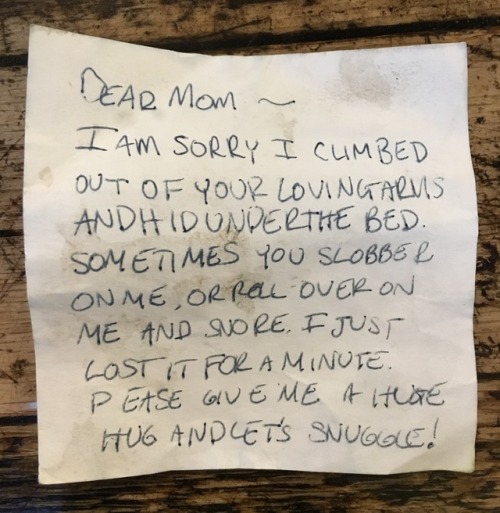 DEAR MOM ~
I AM SORRY I CLIMBED
OUT OF YOUR LOVING ARMS
AND HID UNDER THE BED.
SOMETIMES YOU SLOBBER
ON ME, OR ROLL OVER ON
ME AND SNORE. I JUST
LOST IT FOR A MINUTE.
PLEASE GIVE ME A HUGE
HUG AND LET'S SNUGGLE!